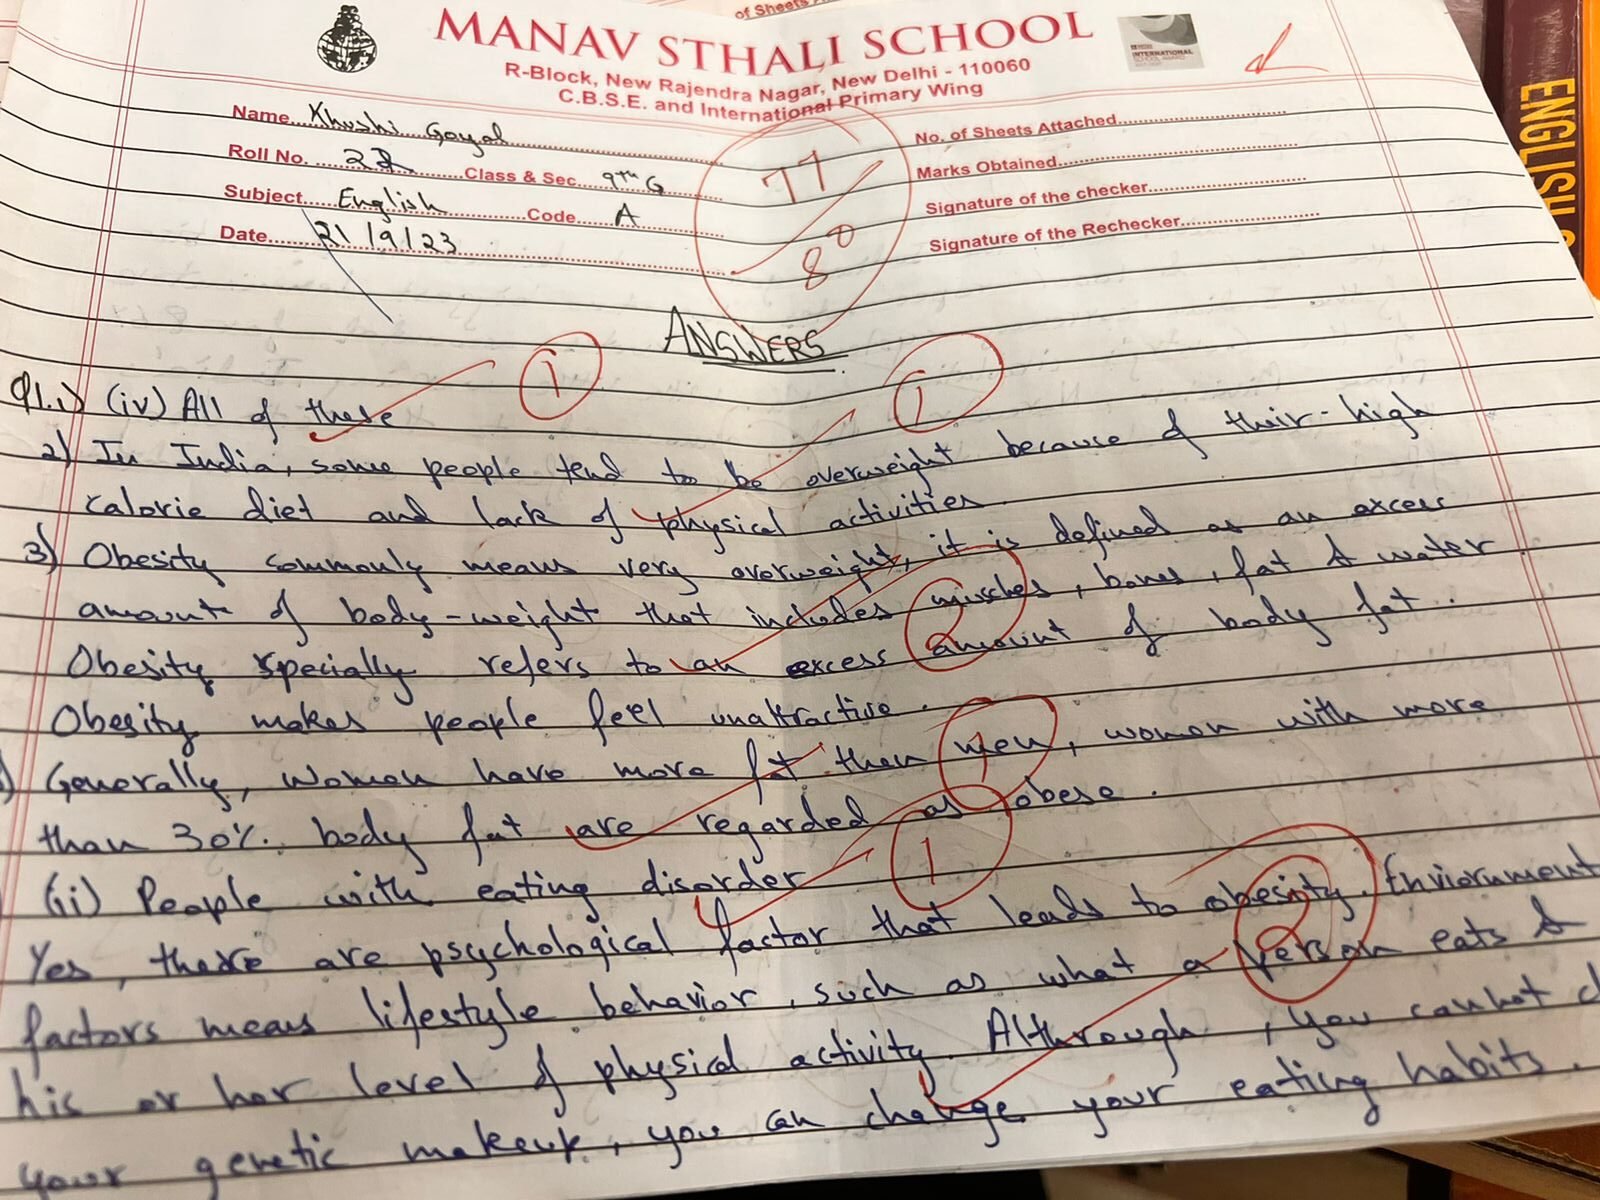 of Sheets
MANAV STHALI SCHOOL
R-Block, New Rajendra Nagar, New Delhi - 110060
C.B.S.E. and International Primary Wing
INTERNATIONAL
ENGLISH
Name Khushi Goyal
Roll No. 22 Class & Sec. 9th G
Subject English Code A
Date 21/9/23
No. of Sheets Attached
Marks Obtained
Signature of the checker
Signature of the Rechecker
77
80
ANSWERS
Q1.i) (iv) All of these 1
2) In India, some people tend to be overweight because of their-high 1
calorie diet and lack of physical activities.
3) Obesity commonly means very overweight, it is defined as an excess
amount of body-weight that includes muscles, bones, fat & water. 2
Obesity specially refers to an excess amount of body fat.
Obesity makes people feel unattractive.
) Generally, women have more fat then men, women with more 1
than 30% body fat are regarded as obese.
(ii) People with eating disorder 1
Yes, there are psychological factor that leads to obesity. Enviornment 2
factors means lifestyle behavior, such as what a person eats &
his or her level of physical activity. Althrough, you cannot c
your genetic makeup, you can change your eating habits.